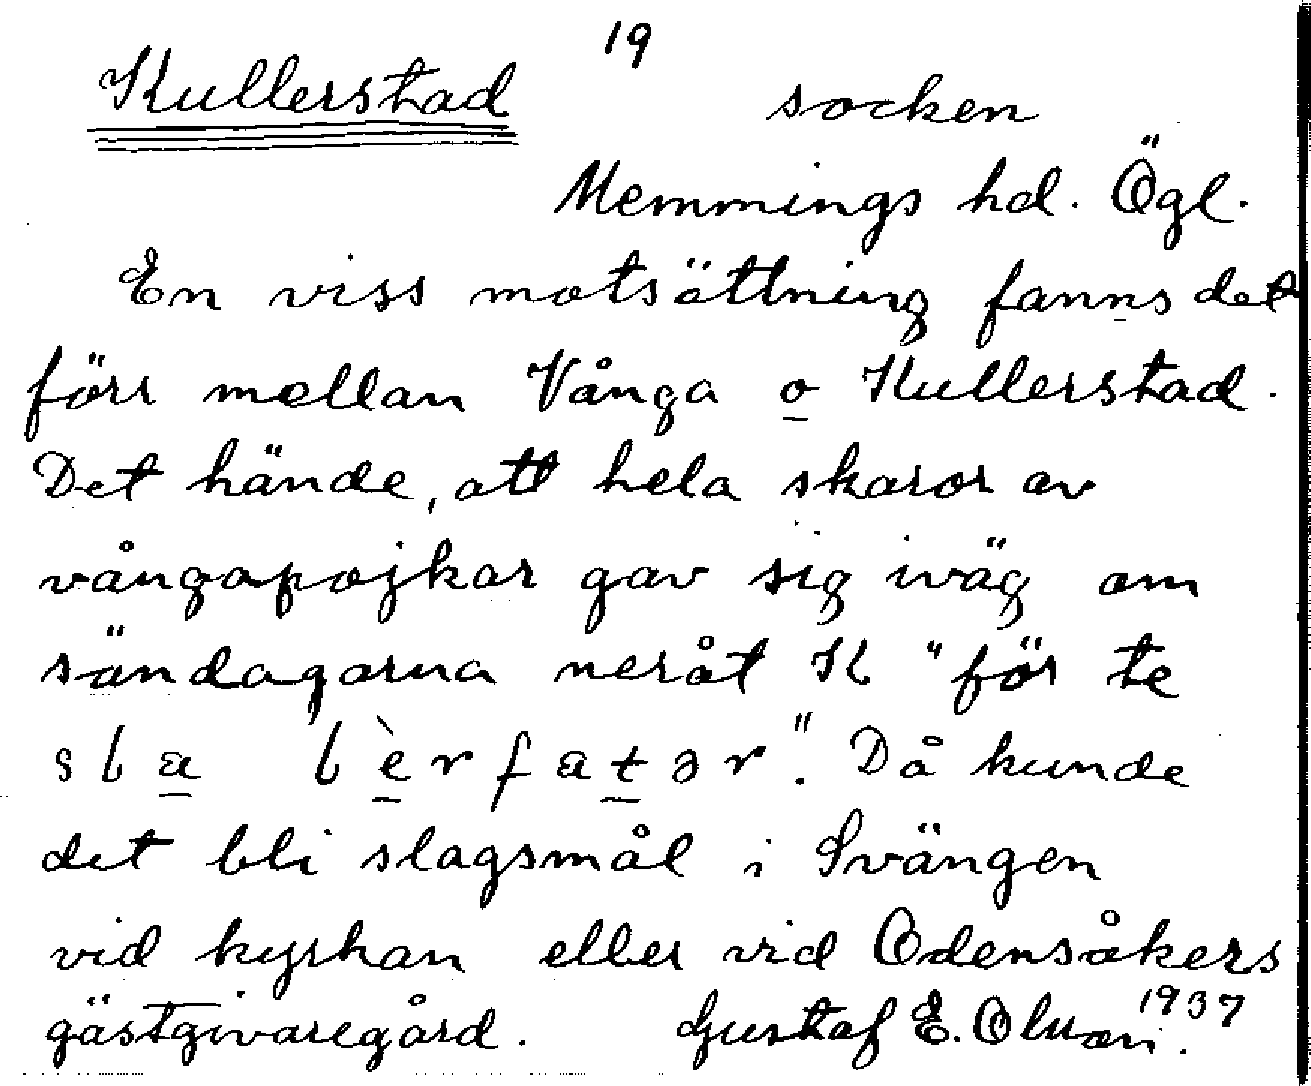 19
Kullerstad socken
Memmings hd. Ögl.
En viss motsättning fanns det
förr mellan Vånga o Kullerstad.
Det hände, att hela skaror av
vångapojkar gav sig iväg om
söndagarna neråt K "för te
sla lèrfatər". Då kunde
det bli slagsmål i Svängen
vid kyrkan eller vid Odensåkers
gästgivaregård. Gustaf E. Olsson 1937.